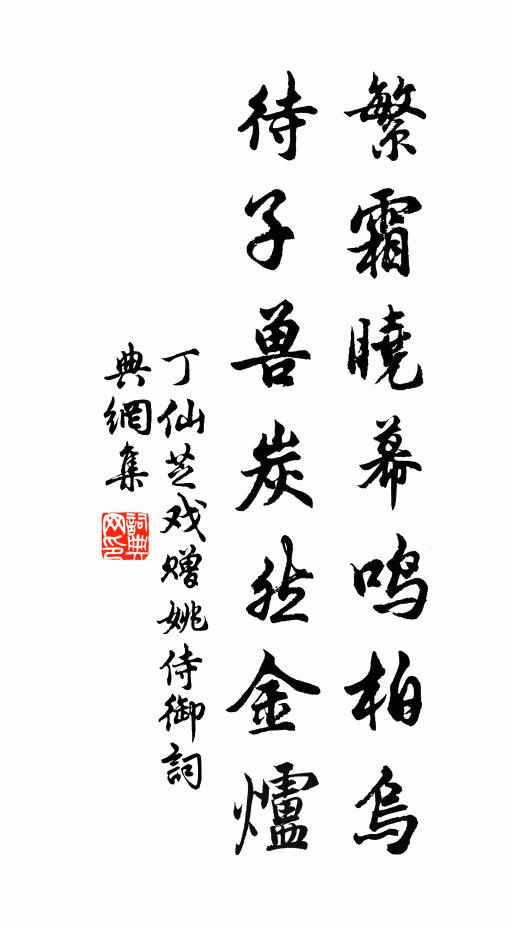 繁霜曉幕鸣柏烏
待子兽炭然金爐
丁仙芝戏赠姚侍御詞
典網集
詞典网印